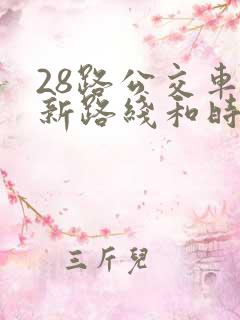 28路公交車
新路綫和時
三斤兒